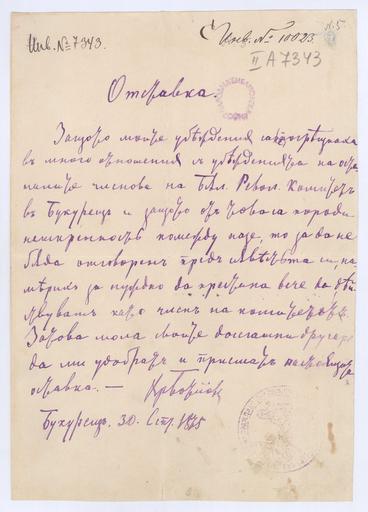 Инв. № 7343.
Инв. № 10023
II A 7343
Оставка.
Защото моите убѣждения
въ много отношения съ убѣжденията на оста-
налите членове на Бъл. Револ. Комитетъ
въ Букурещъ и защото отъ това се породи
неискренность помежду назе, то за да не
бѫда отговоренъ предъ съвѣстьта си, на-
мѣрихъ за нуждно да престана вече да дѣй-
ствувамъ като членъ на комитетътъ.
Затова моля моите досегашни другари
да ми удобрятъ и приематъ настоящата
оставка. —
Хр Ботйовъ
Букурещъ, 30. Септ. 1875